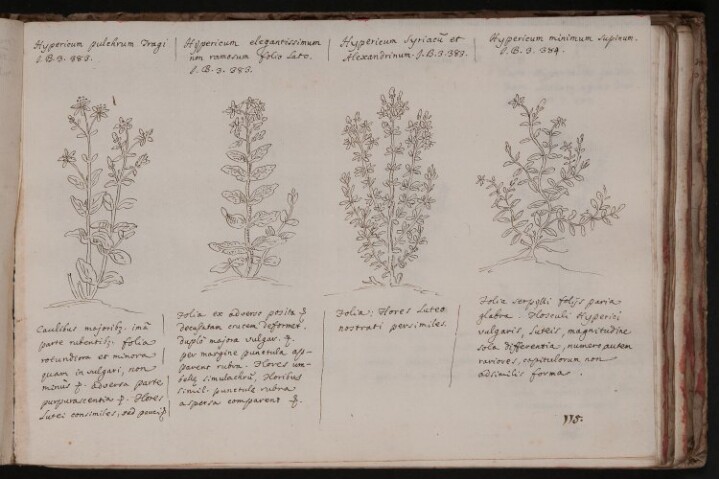 Hypericum pulchrum Tragi
J. B. 3. 383.
Hypericum elegantissimum
non ramosum folio lato.
J. B. 3. 383.
Hypericum Syriacũ et
Alexandrinum. J. B. 3. 383.
Hypericum minimum supinum.
J. B. 3. 384.
Caulibus majoribꝫ. imâ
parte rubentibꝫ. folia
rotundiora et minora
quam in vulgari, non
minus adversa parte
purpurascentia Flores
Lutei consimiles, sed
Folia ex adverso posita
decussatam crucem
duplo majora vulgar.
per margine punctula ap-
parent rubra. Flores um-
bellę floribus
simil. punctula rubra
aspersa comparent
Folia; Flores Luteo
nostrati persimiles.
Folia serpilli folijs paria
glabra. Flosculi Hyperici
vulgaris, Luteis, magnitudine
sola differentia, numero autem
rariores, capitulorum non
adsimilis forma.
115.